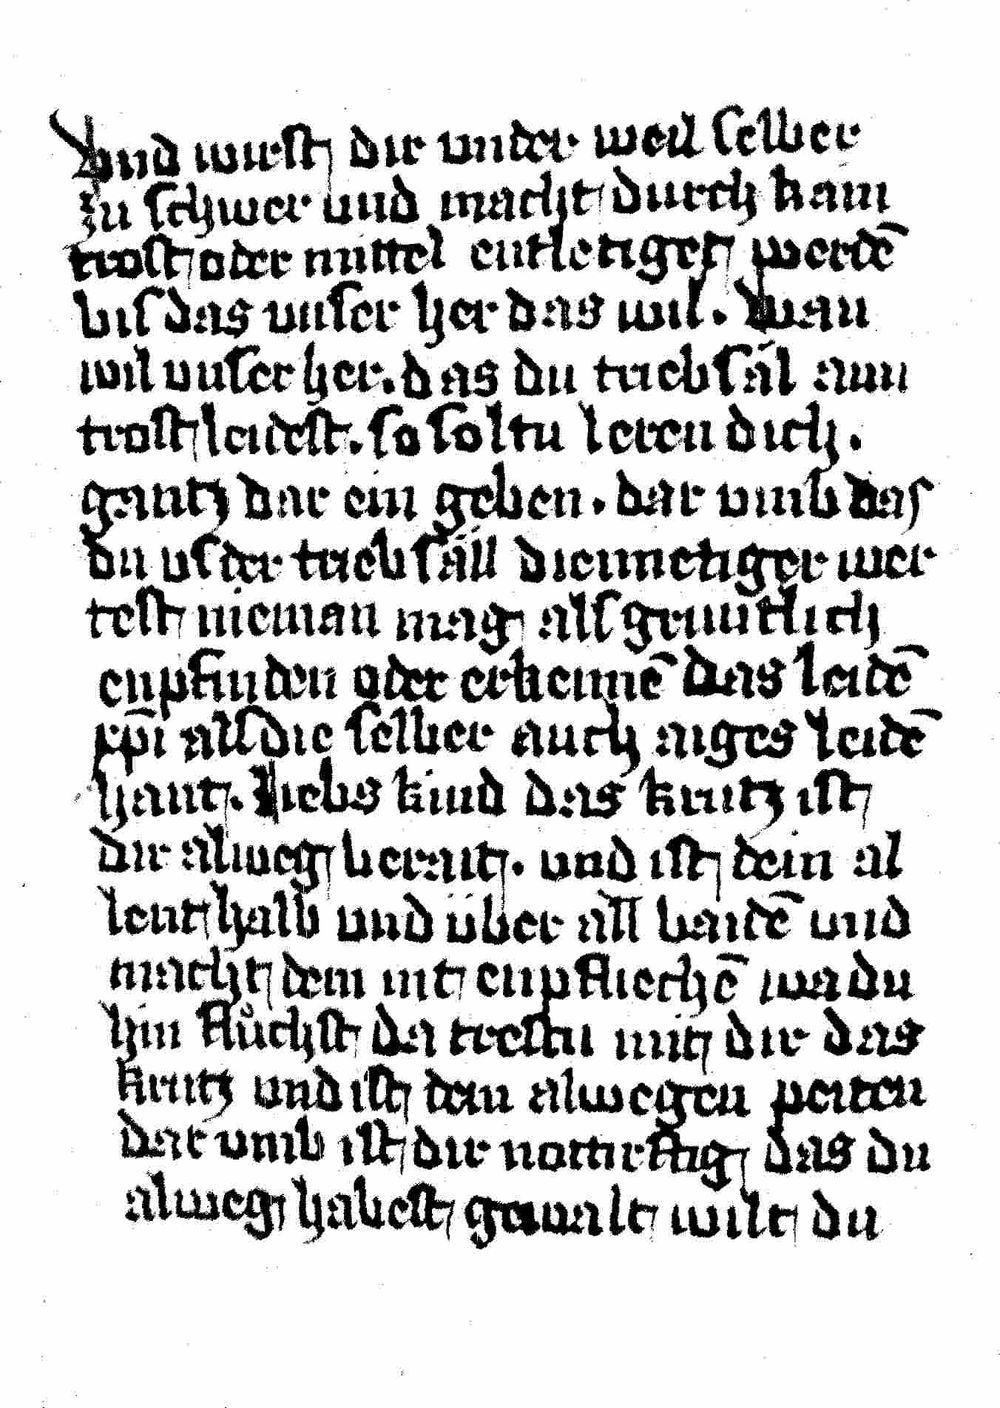 Und wirst dir under weil selber
zu schwer und macht durch kain
trost oder mittel entletiget werdē
bis das unser her das wil. Wan
wil unser her. das du triebsäl ann
trost leidest. so soltu leren dich.
gantz dar ein geben. dar umb das
du us der triebsäll diemietiger wer
test nieman mag als gruntlich
enpfinden oder erkennē das leidē
xp̄i als die selber auch aiges leidē
hant. Liebs kind das krutz ist
dir alweg berait. und ist dein al
lenthalb und über all baitē und
macht dem nit enpfliechē wa du
hin flůchst da trestu mit dir das
krutz und ist dein alwegen peiten
dar umb ist dir notturftig das du
alweg habest gewalt wilt du